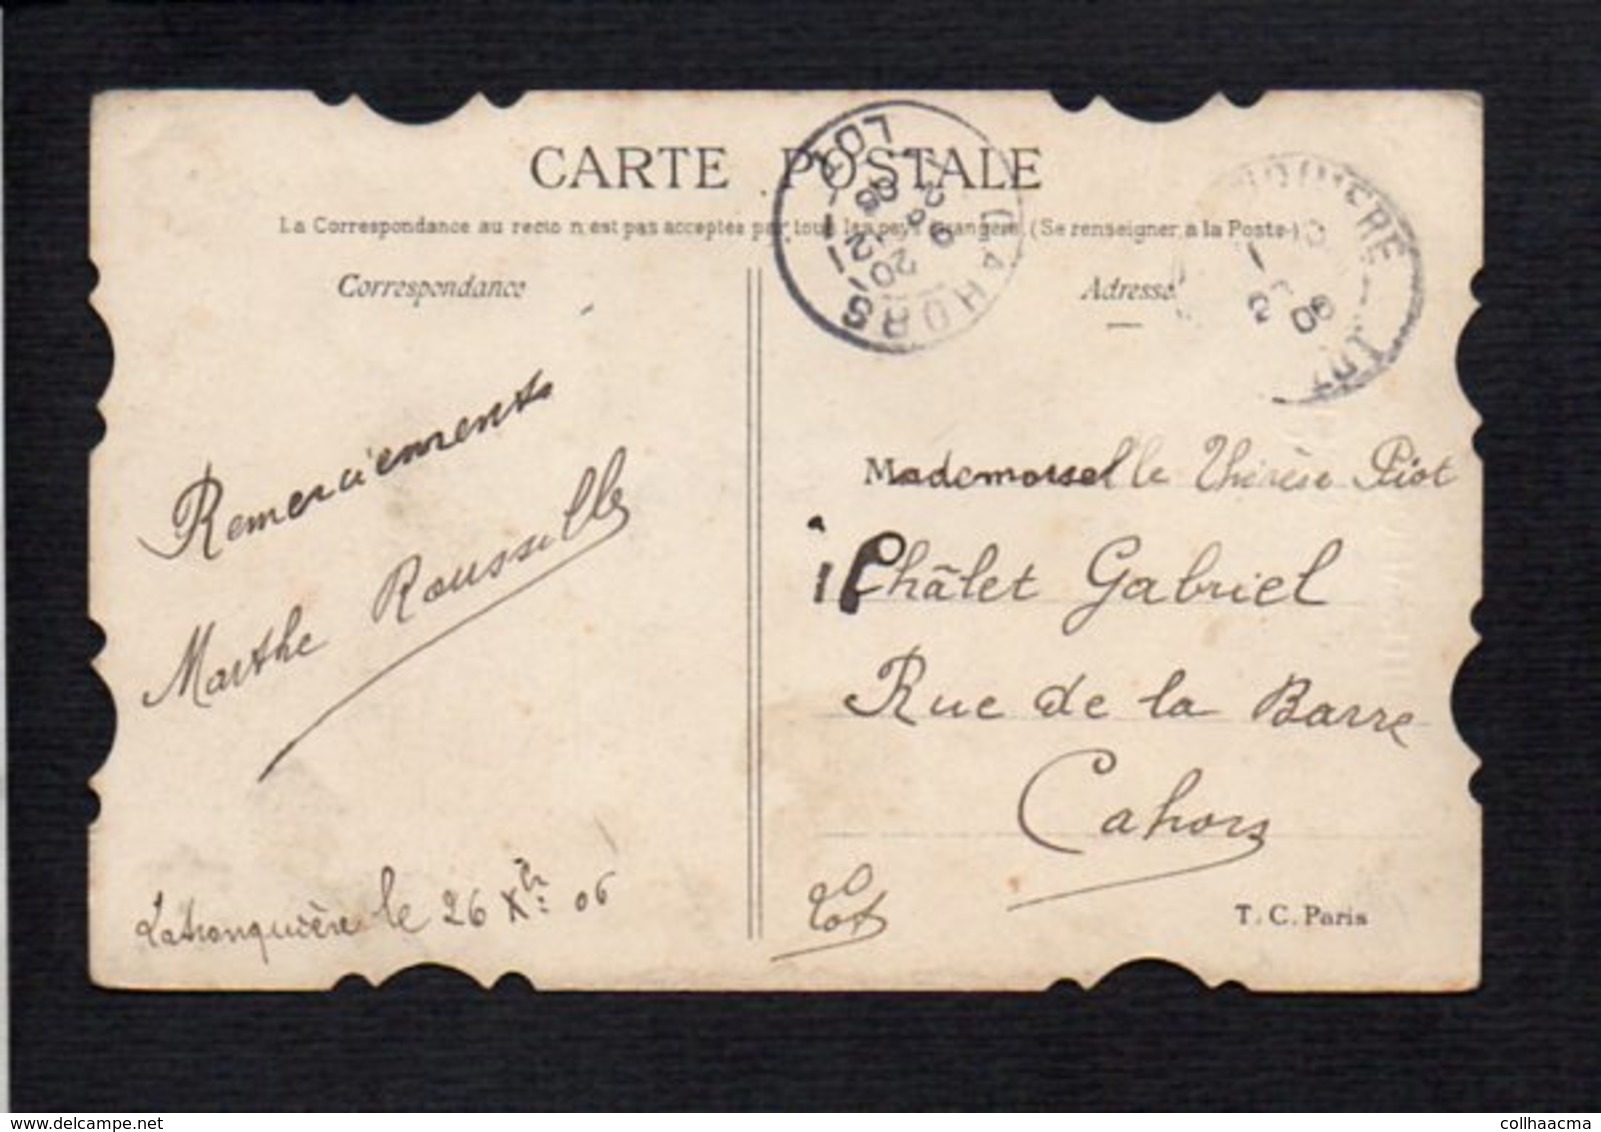 CARTE POSTALE
La Correspondance au recto n'est pas acceptée par tous les pays étrangers. (Se renseigner à la Poste)
Correspondance
Remerciements
Marthe Rousselle
Latronquière le 26 Xbre 06
Adresse
Mademoiselle Thérèse Piot
Châlet Gabriel
Rue de la Barre
Cahors
Lot
T. C. Paris
CAHORS
LOT
LOT
06
delcampe.net
collhaacma